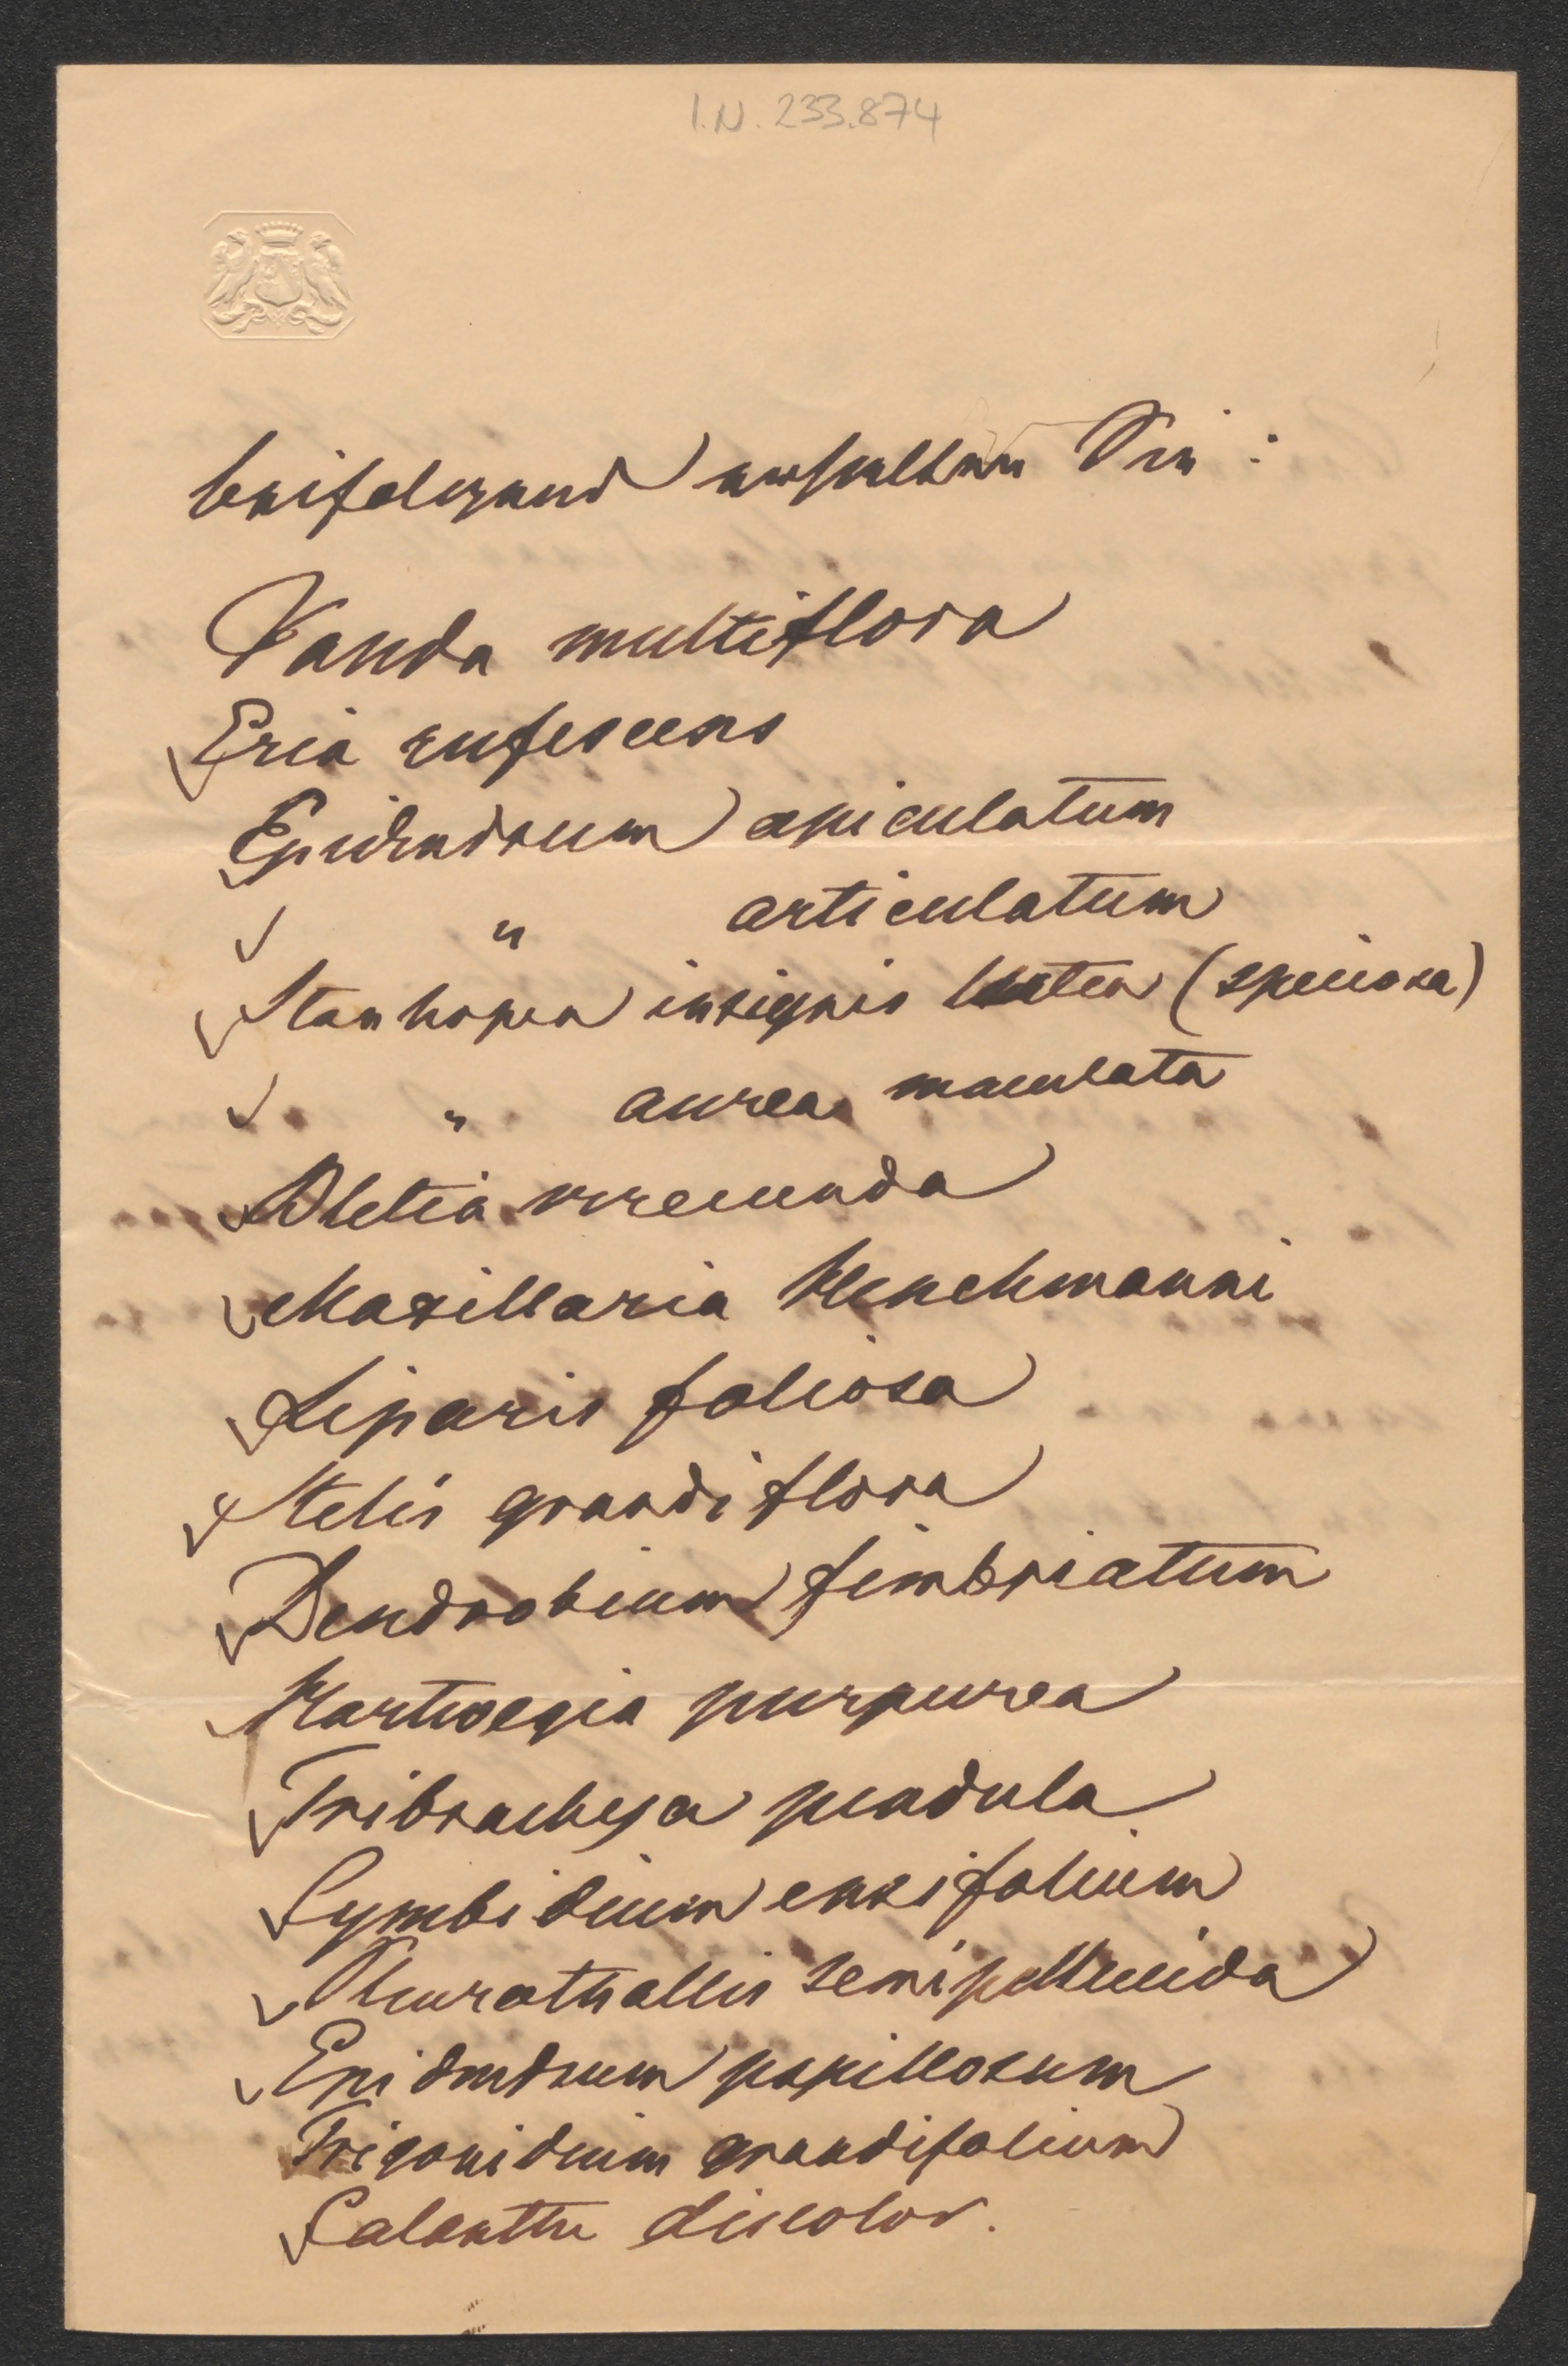 I.N. 233.874
beifolgend erhalten Sie :
Vanda multiflora
Eria rufescens
Epidendrum apiculatum
" articulatum
Stanhopea insignis lutea (speciosa)
" aurea maculata
Bletia verecunda
Maxillaria Henchmanni
Liparis foliosa
Stelis grandiflora
Dendrobium fimbriatum
Hartwegia purpurea
Tribrachya pendula
Cymbidium ensifolium
Pleurothallis semipellucida
Epidendrum papillosum
Trigonidium grandifolium
Calanthe discolor.